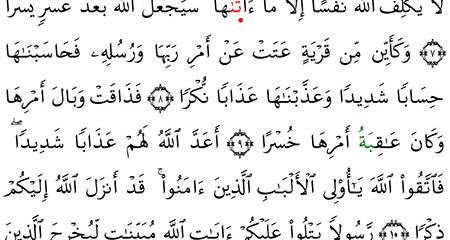 لَا يُكَلِّفُ ٱللَّهُ نَفْسًا إِلَّا مَآ ءَاتَىٰهَا ۚ سَيَجْعَلُ ٱللَّهُ بَعْدَ عُسْرٍ يُسْرًا
﴿٧﴾ وَكَأَيِّن مِّن قَرْيَةٍ عَتَتْ عَنْ أَمْرِ رَبِّهَا وَرُسُلِهِۦ فَحَاسَبْنَـٰهَا
حِسَابًا شَدِيدًا وَعَذَّبْنَـٰهَا عَذَابًا نُّكْرًا ﴿٨﴾ فَذَاقَتْ وَبَالَ أَمْرِهَا
وَكَانَ عَـٰقِبَةُ أَمْرِهَا خُسْرًا ﴿٩﴾ أَعَدَّ ٱللَّهُ لَهُمْ عَذَابًا شَدِيدًا ۖ
فَٱتَّقُوا۟ ٱللَّهَ يَـٰٓأُو۟لِى ٱلْأَلْبَـٰبِ ٱلَّذِينَ ءَامَنُوا۟ ۚ قَدْ أَنزَلَ ٱللَّهُ إِلَيْكُمْ
ذِكْرًا ﴿١٠﴾ رَّسُولًا يَتْلُوا۟ عَلَيْكُمْ ءَايَـٰتِ ٱللَّهِ مُبَيِّنَـٰتٍ لِّيُخْرِجَ ٱلَّذِينَ